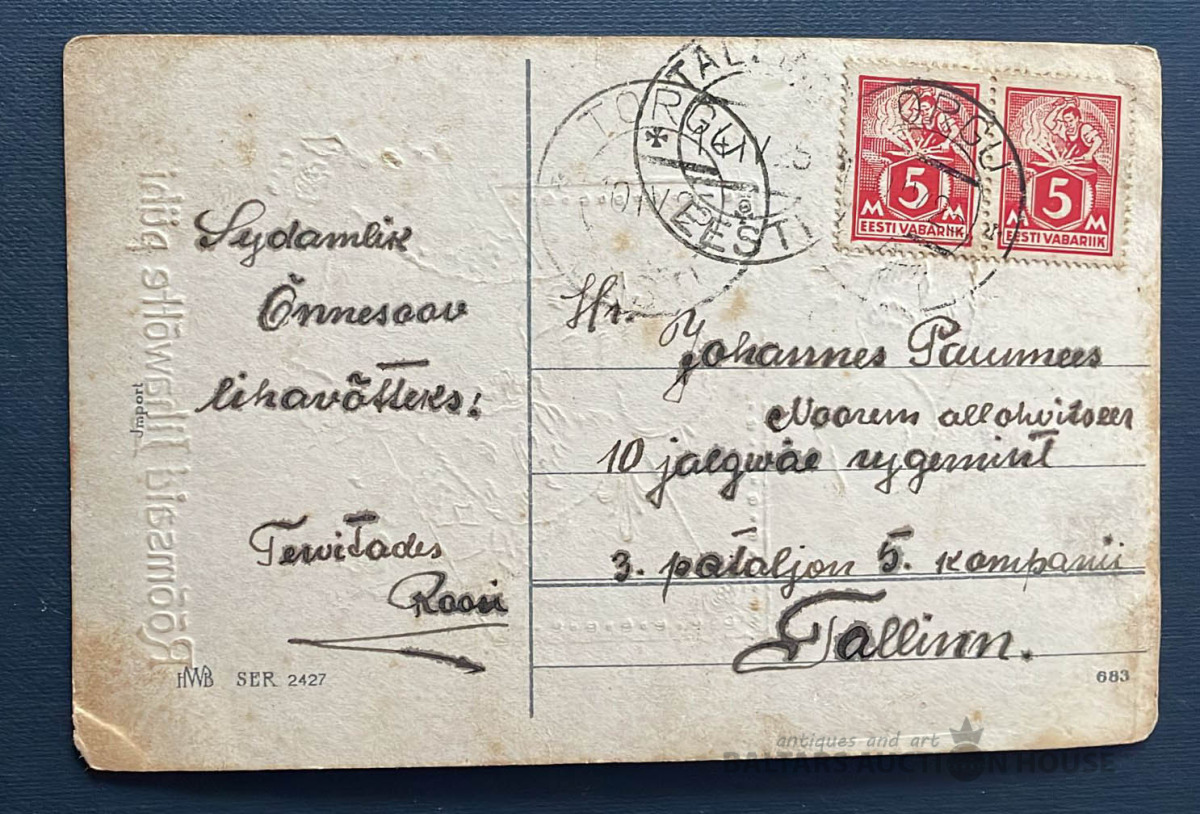 Sydamlik
Õnnesoov
lihavõtteks!
Tervitades
Import
HWB SER. 2427
TORGU
TALLINN
EESTI
TORGU
5 5
M M M M
EESTI VABARIIK EESTI VABARIIK
Hr. Johannes Paumees
Noorem allohvitseer
10 jalgwäe rygemint
3. pataljon 5. kompanii
Tallinn.
683
antiques and art
BALTARS AUCTION HOUSE